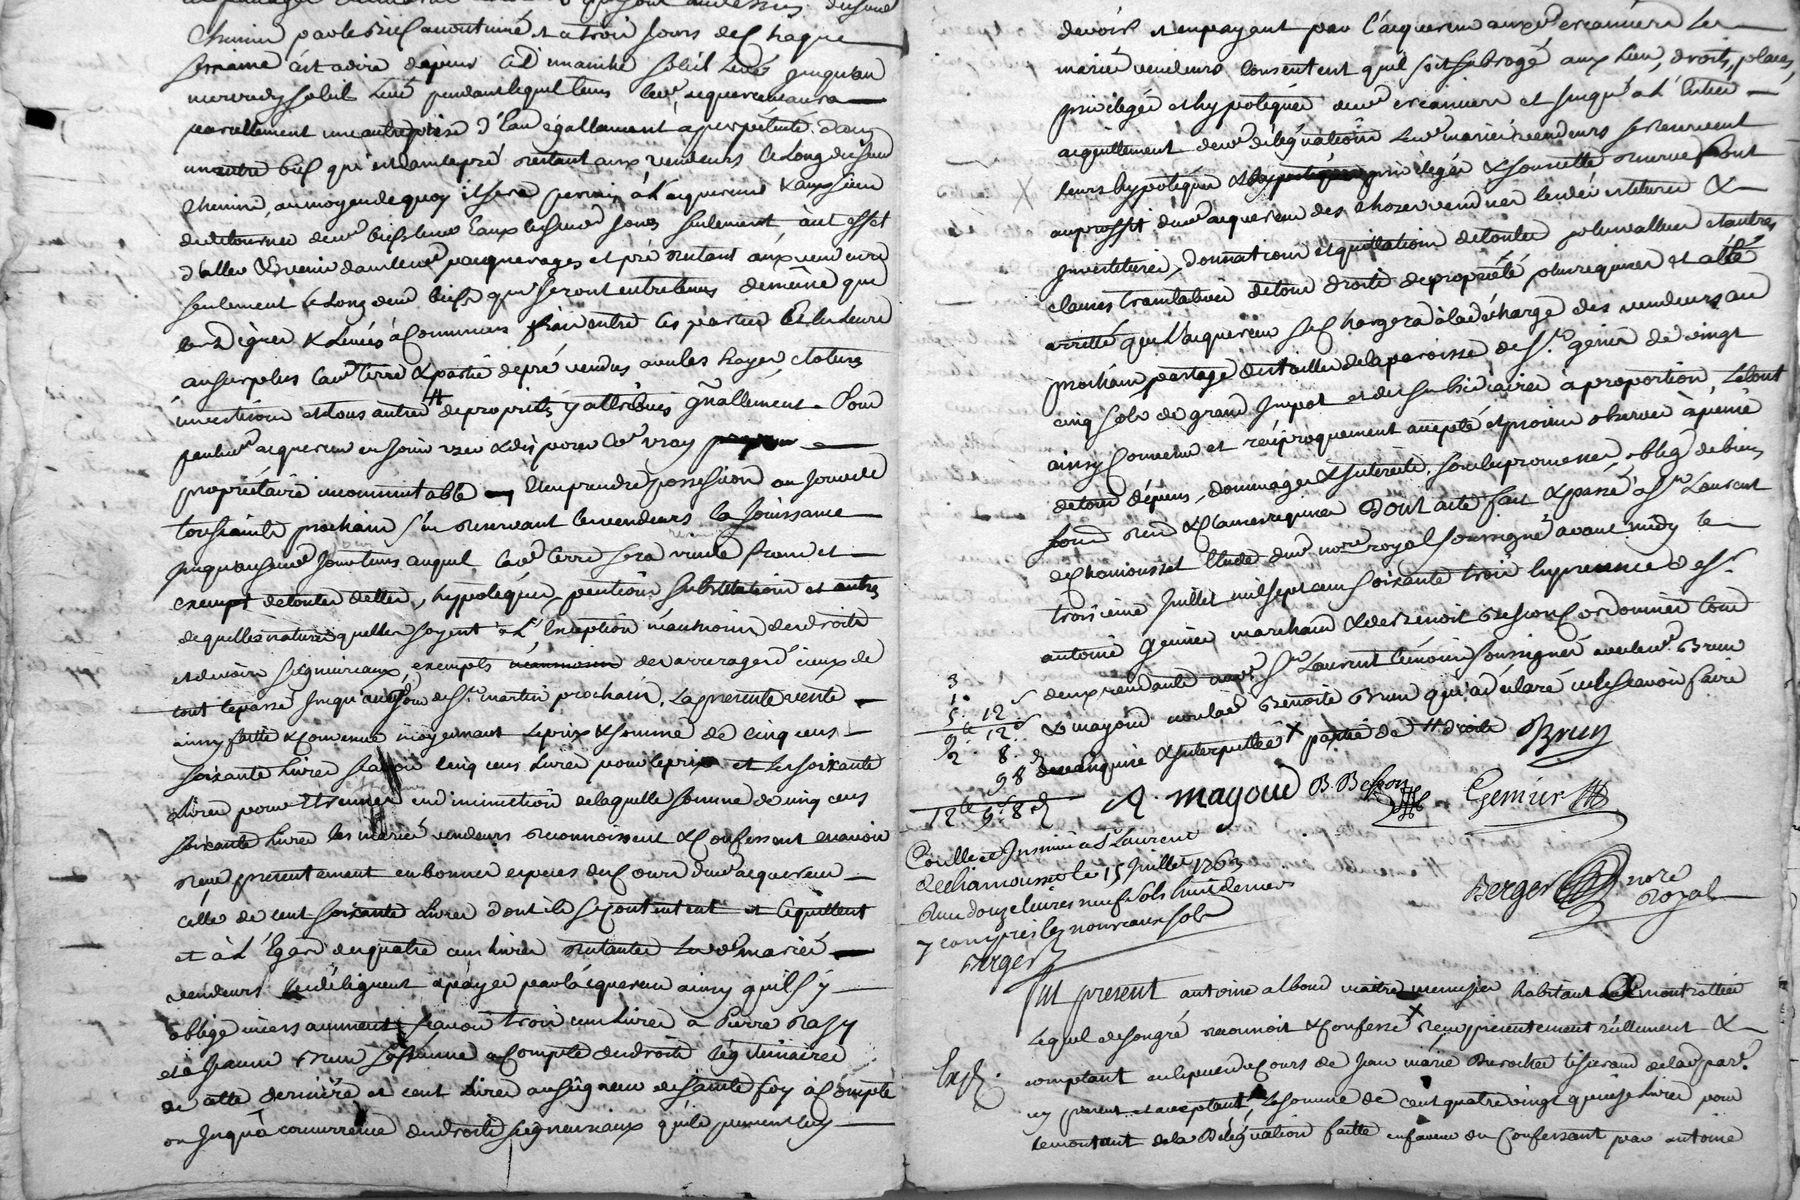 chemin par le bief accoutumé et a trois jours de Chaque
semaine c'est adire depuis le dimanche soleil levé jusqu'au
mercredy soleil levé pendant lequel tems led. acquereur aura
pareillement une autre prise d'Eau egallement a perpetuité dans
un autre bief qui est dans le pré restant aux vendeurs le long dud.
chemin, au moyen de quoy il sera permis a l'acquereur
de detourner desd. biefs leurs Eaux lesd. jours seulement, a cet effet
d'aller & venir dans led. paquerages et pré restant aux vendeurs
seulement le long desd. biefs qui seront entretenus de même que
les digues & levées a Communs frais entre les parties
au surplus lad. terre & partie de pré vendus avec les hayes, clotures
investisons et tous autres # de proprieté y attribués gnãllement. Pour
par led. acquereur en jouir user & disposer Co.e vray
propriétaire incommutable en prendre possession au jour de
toussaints prochain s'en reservant les vendeurs la jouissance
jusqu'aud. jour tems auquel lad. terre sera vuide franc et
exempt de toutes dettes, hypoteques, pentions substitutions et autres
de quelles natures quelles soyent a l'Exception néanmoins des droits
et devoirs seigneuriaux, exempts des arrerages d'iceux de
tout le passé jusqu'au jour de St. martin prochain. La presente vente
ainsy faitte & convenue moyennant le prix & somme de cinq cens
soixante livres sçavoir cinq cens livres pour le prix et les soixante
livres pour Etrennes en diminution de laquelle somme de cinq cens
soixante livres les mariés vendeurs reconnoissent & Confessent en avoir
reçu presentement en bonnes especes du Cours dud. acquereur
celle de cent soixante livres dont ils se contentent et le quittent
et a l'Egard des quatre cens livres restantes lesd. mariés
vendeurs les déleguent a payer par l'acquereur ainsy qu'il s'y
oblige incessamment sçavoir trois cens livres a Pierre
et a Jeanne Brun sa femme a Compte des droits légitimaires
de cette derniere et cent livres au seigneur de sainte foy a Compte
ou jusqu'a concurrence des droits seigneuriaux qu'ils peuvent luy
devoir et en payant par l'acquereur auxd. creanciers les
mariés vendeurs consentent quil soit subrogé aux lieu, droits, places,
privilèges et hypoteques desd. creanciers et jusqu'a l'Entier
acquittement desd. délégations lesd. mariés vendeurs se reservent
leurs hypoteques & privilèges & sous cette reserve font
au proffit dud. acquereur des choses vendues les dévetitures &
Investitures, donnations et quittations de toutes plus values et autres
clauses translatives de tous droits de propriété plus requises et a été
arretté que l'acquereur se chargera a la décharge des vendeurs au
prochain partage des tailles de la paroisse de St. genis de vingt
cinq sols de grand Impot et des subsidiaires a proportion, le tout
ainsy convenu et réciproquement accepté et promis observer à peine
de tous dépens, dommages & Interets, sous les promesses, oblig. de biens
soum. ren. & clauses requises Dont acte fait & passé a St. Laurent
de Chamousset Etude dud. nore. royal soussigné avant midy le
troisieme Juillet mil sept cens soixante trois En presence de Sr.
antoine genier marchand & de benoit besson Cordonnier tous
deux residants aud. St. Laurent temoins soussignés avec led. Brun
& mayoud non lad. Benoite Brun qui a declaré ne le sçavoir faire
de ce Enquise & Interpellée X partie de # droits Brun
3
1.
5. 12 s
9. 12. s
2. 8.
98
12tt 9s. 8d
A. mayoud B. Besson Genier
Berger nore
Royal
Controllé et Insinué a St Laurent
de chamousset le 15 Juillet 1763
Reçu douze livres neuf sols huit deniers
y compris les nouveaux sols
Berger
Fut present antoine alboud maitre menuisier habitant a montrottier
Lequel de son gré reconnoit & confesse X reçu presentement réellement &
Exp.
comptant en especes de cours de Jean marie Durochet tisserand de lad. par.
cy present et acceptant, la somme de cent quatre vingt quinze livres pour
le montant de la Délégation faitte en faveur du confessant par antoine